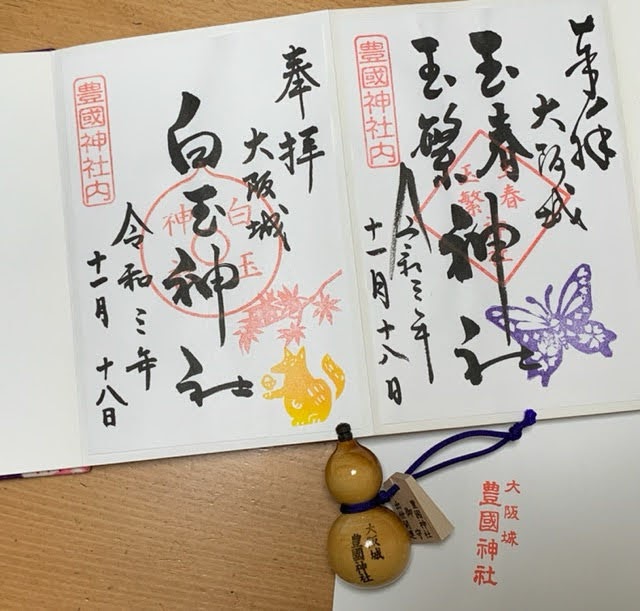 奉拝
大阪城
玉春神社
玉繁
豊國神社内
令和三年
十一月十八日
玉春
玉繁
奉拝
大阪城
白玉神社
豊國神社内
令和三年
十一月十八日
白玉
神
大阪城
豊國神社
大阪城
豊國神社
豊國神社